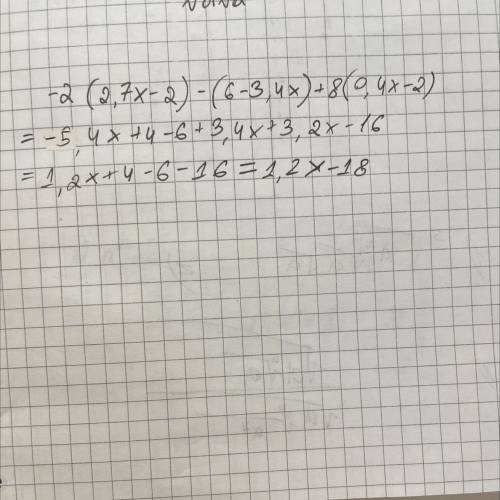 -2 (2,7x-2) -(6-3,4x)+8(0,4x-2)
= -5,4x+4-6+3,4x+3,2x-16
= 1,2x+4-6-16=1,2x-18